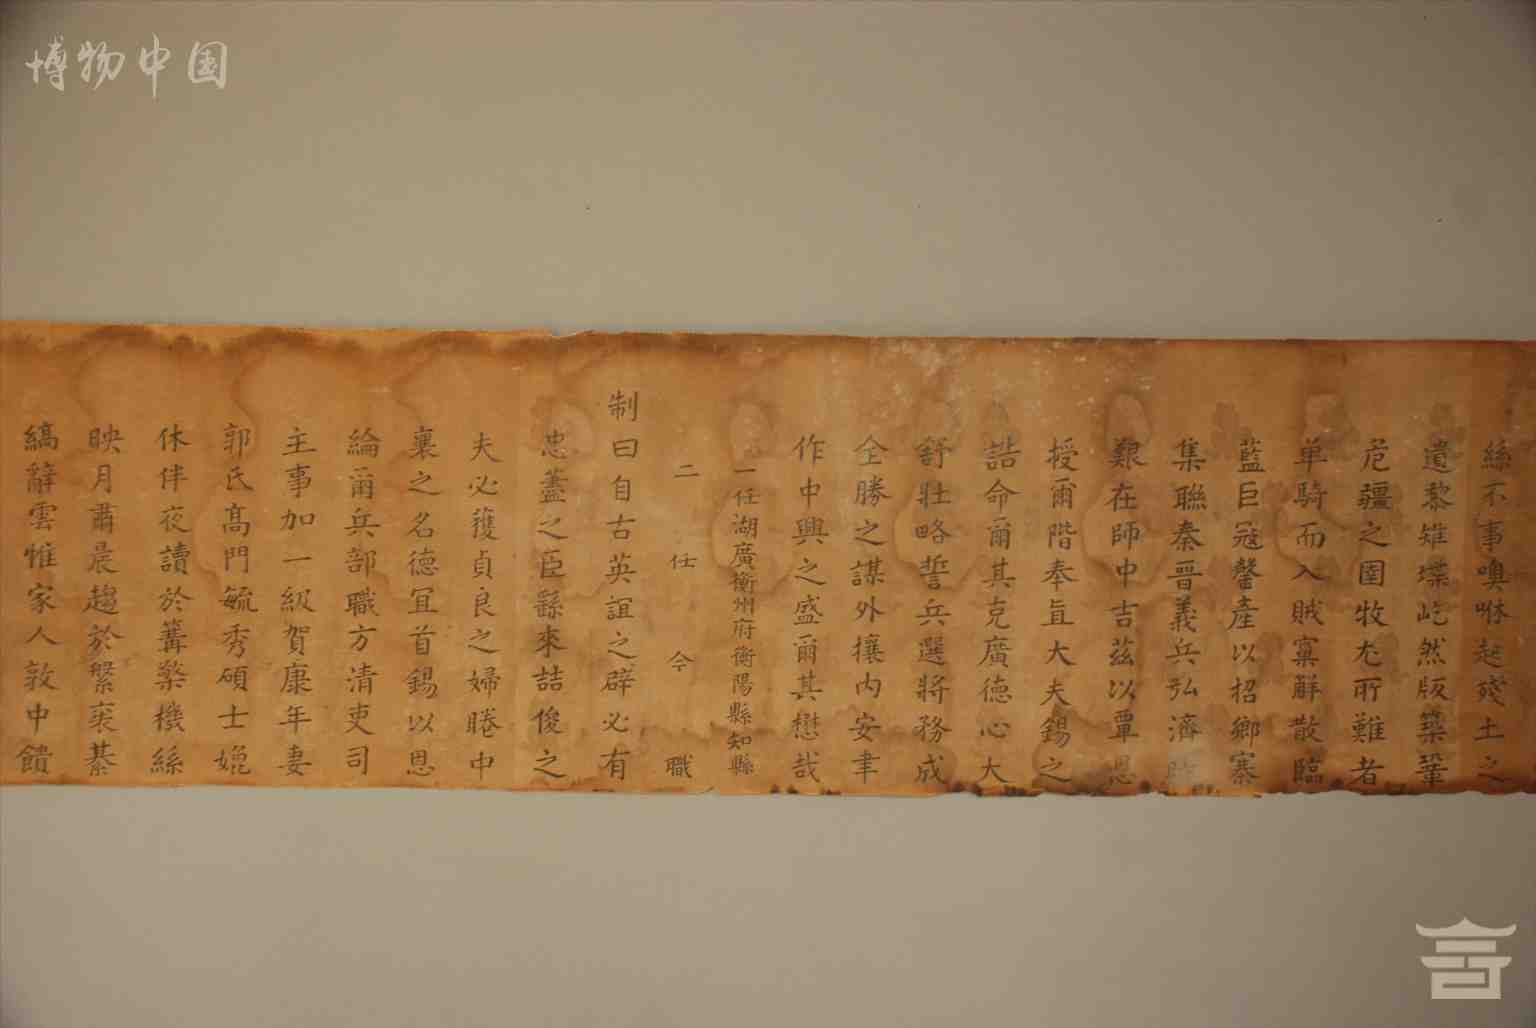 博物中国
絲不事噢咻起殘土之
遺黎雉堞屹然版築鞏
危疆之圉牧尤所難者
单騎而入賊窠觧散臨
藍巨冦罄產以招鄉寨
集聯秦晋義兵弘濟時
艱在師中吉茲以覃恩
授爾階奉㫖大夫錫之
誥命爾其克廣德心大
舒壯略誓兵選將務成
全勝之謀外攘内安聿
作中興之盛爾其懋哉
一任湖廣衡州府衡陽縣知縣
二任今職
制曰自古英誼之辟必有
忠藎之臣繇來喆俊之
夫必獲貞良之婦睠中
襄之名德冝首錫以恩
綸爾兵部職方清吏司
主事加一級賀康年妻
郭氏髙門毓秀碩士嬎
休伴夜讀於篝檠機絲
映月肅晨趨於鞶袠綦
縞辭雲惟家人敦中饋